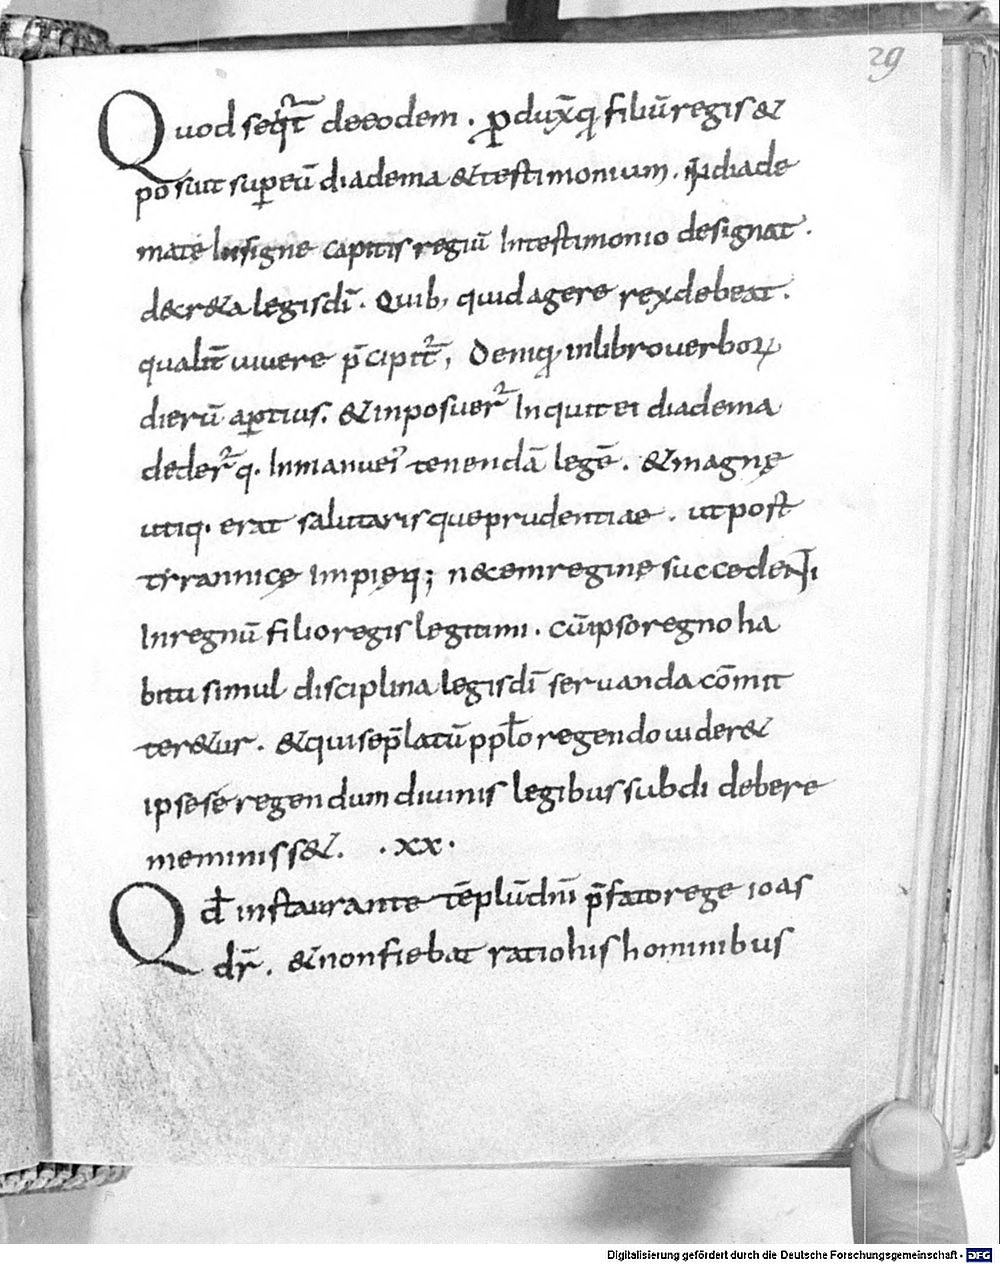 29
Quod seqt̄ᷣ deeodem . ꝓduxꝗ filiū regis &
posuit sup eū diadema & testimonium . In diade
mate Insigne capitis regiū In testimonio designat .
decr&a legis dī . Quib; quid agere rex debeat .
qualit̄ uiuere p̄cipit̄ᷣ , Deniq; in libro uerboꝝ
dierū aptius . & inposuerᷣ Inquit ei diadema
dederᷣq . In manu eiꝰ tenendā legē . & magnę
utiq . erat salutarisque prudentiae . ut post
tyrannicę Impięq; necem reginę succedenti
In regnū filio regis legitimi . cū ipso regno ha
bitu simul disciplina legis dī seruanda cōmit
ter&ur . & qui se p̄latū pplo regendo uider&
ipse se regendum diuinis legibus subdi debere
meminiss&. · xx ·
Qđ instaurante tēplū dn̄i p̄fato rege ioas
dr̄ . & non fiebat ratio his hominibus
Digitalisierung gefördert durch die Deutsche Forschungsgemeinschaft - DFG